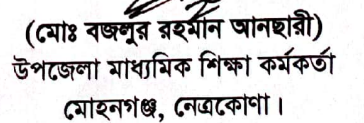 (মোঃ বজলুর রহমান আনছারী)
উপজেলা মাধ্যমিক শিক্ষা কর্মকর্তা
মোহনগঞ্জ, নেত্রকোণা।